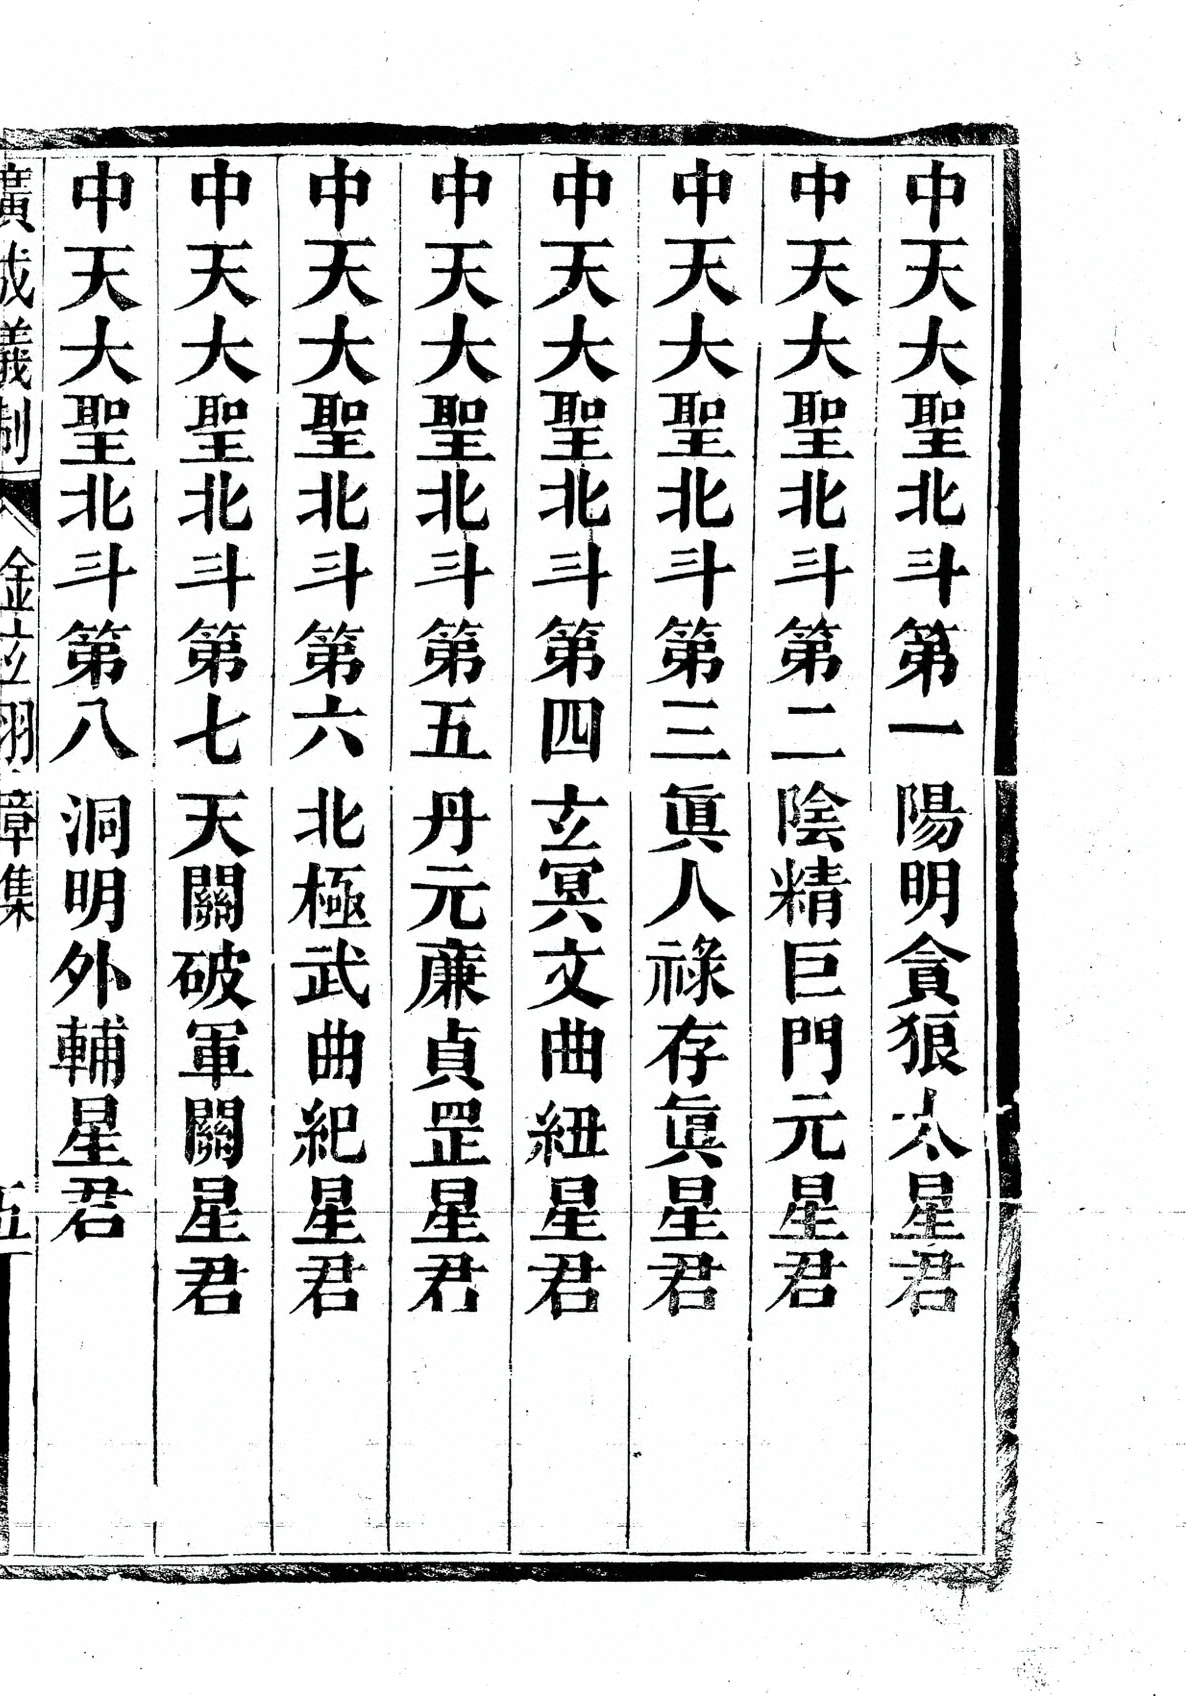 中天大聖北斗第一陽明貪狼太星君
中天大聖北斗第二陰精巨門元星君
中天大聖北斗第三眞人祿存眞星君
中天大聖北斗第四玄冥文曲紐星君
中天大聖北斗第五丹元廉貞罡星君
中天大聖北斗第六北極武曲紀星君
中天大聖北斗第七天關破軍關星君
中天大聖北斗第八洞明外輔星君
廣成儀制 金玄 章集 五